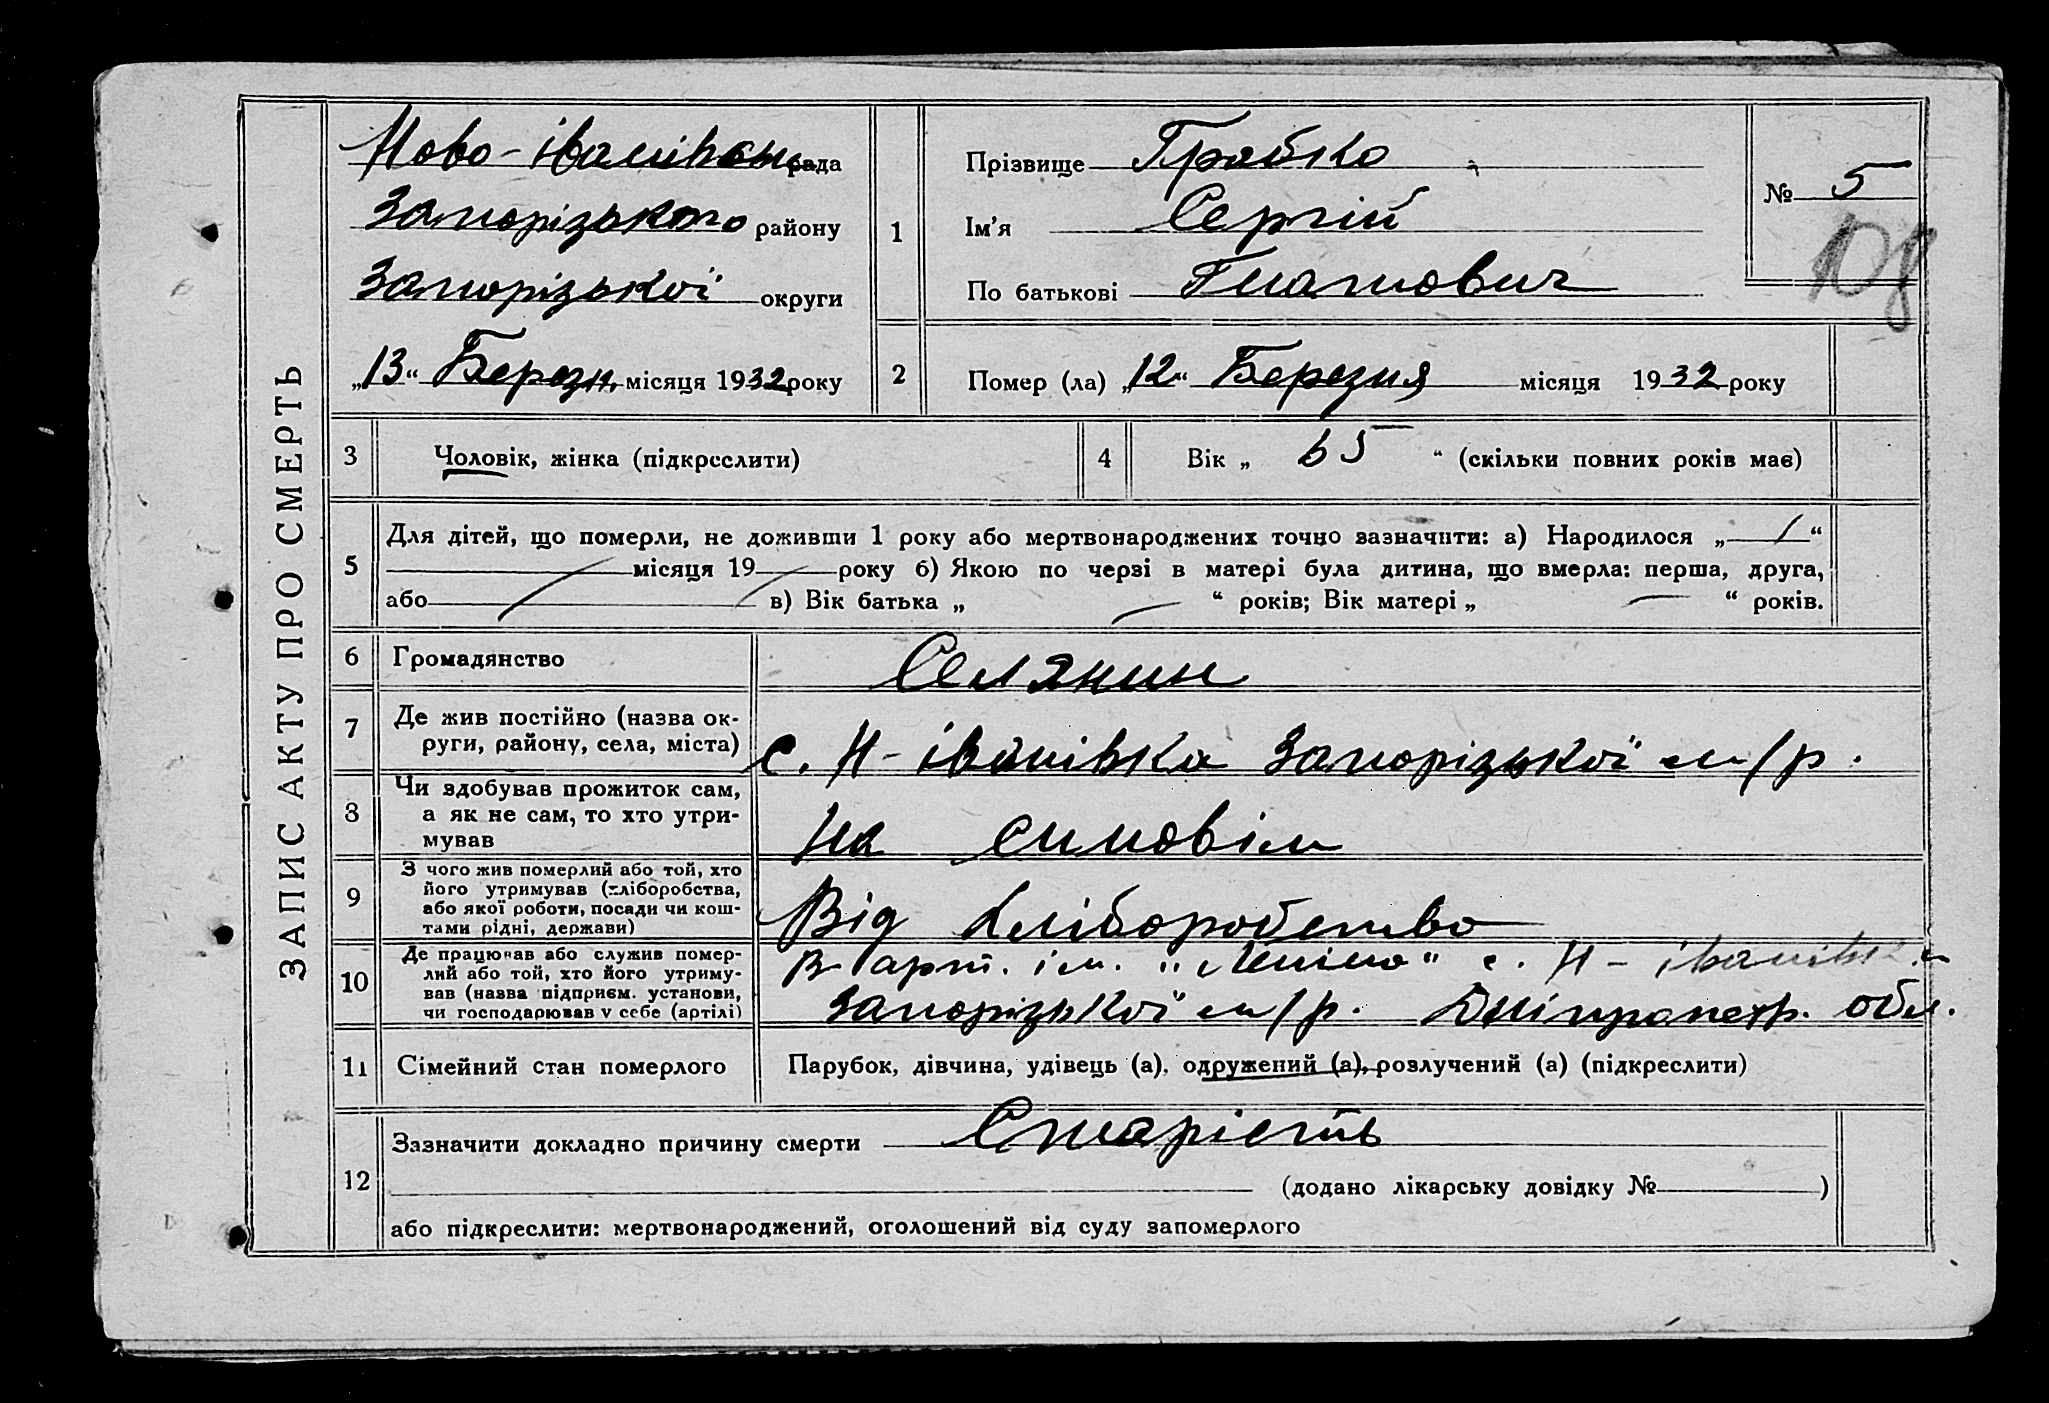 ЗАПИС АКТУ ПРО СМЕРТЬ
Ново-іванівськ рада
Запорізького району
Запорізької округи
„13“ Березн. місяця 1932 року
1
Прізвище Грабко
Ім’я Сергій
По батькові Гнатович
№ 5
108
2
Помер (ла) „12“ Березня місяця 1932 року
3 Чоловік, жінка (підкреслити)
4 Вік „ 65 “ (скільки повних років має)
5
Для дітей, що померли, не доживши 1 року або мертвонароджених точно зазначити: а) Народилося „ “
місяця 19 року б) Якою по черзі в матері була дитина, що вмерла: перша, друга,
або в) Вік батька „ “ років; Вік матері „ “ років.
6 Громадянство Селянин
7 Де жив постійно (назва ок-
руги, району, села, міста)
с. Н-іванівка Запорізької м/р.
8 Чи здобував прожиток сам,
а як не сам, то хто утри-
мував
На синовім
9 З чого жив померлий або той, хто
його утримував (хліборобства,
або якої роботи, посади чи кош-
тами рідні, держави)
Від хліборобство
10 Де працював або служив помер-
лий або той, хто його утриму-
вав (назва підприєм. установи,
чи господарював у себе (артілі)
В арт. ім. „Леніна“ с. Н-іванівк
Запорізької м/р. Дніпропетр. обл.
11 Сімейний стан померлого Парубок, дівчина, удівець (а), одружений (а), розлучений (а) (підкреслити)
12
Зазначити докладно причину смерти Старість
(додано лікарську довідку № )
або підкреслити: мертвонароджений, оголошений від суду запомерлого